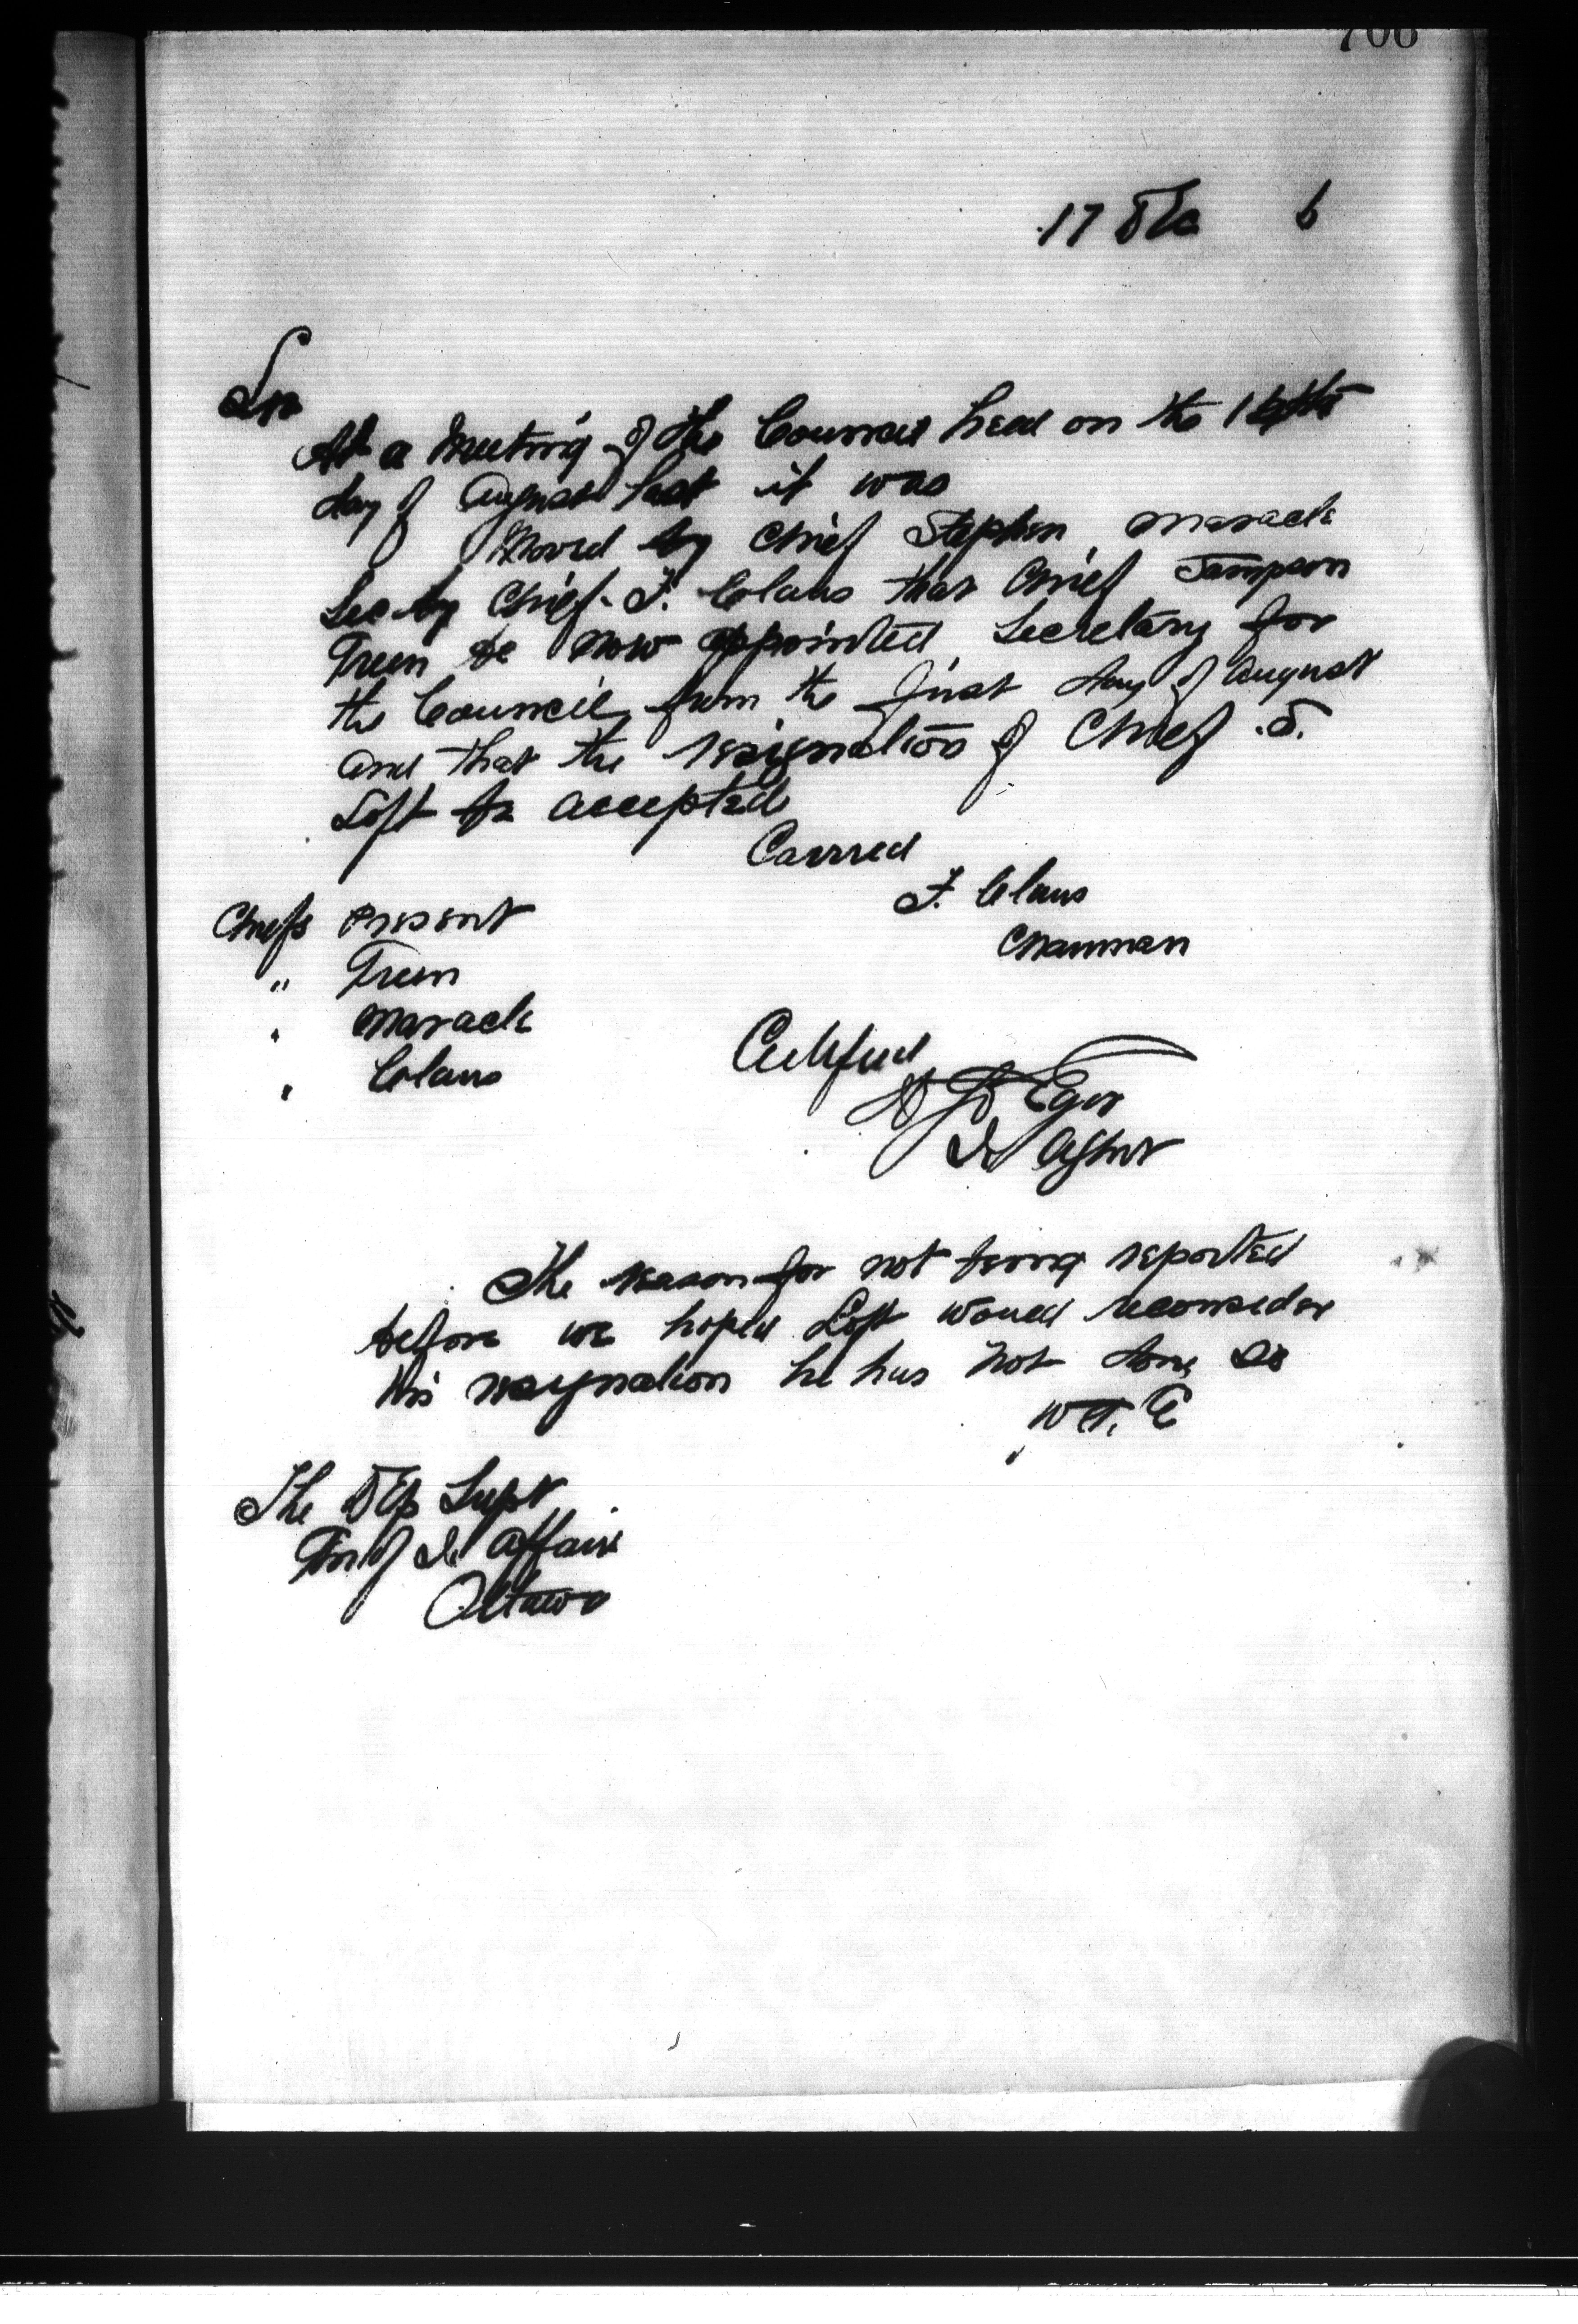 706
17 Dec 6
Sir
At a Meeting of the Council held on the
day of August last it was
Moved by Chief Stephen Maracle
Sec by Chief J. Claus that Chief Sampson
Green be now appointed Secretary for
the Council from the first day of August
and that the resignation of Chief
Loft be accepted
Carried
J. Claus
Chairman
Chiefs Present
" Green
" Maracle
" Claus
Certified
I Agent
The reason for not being reported
before we hoped Loft would reconsider
his resignation he has not done so
The Dep Supt
Gen of I. Affairs
Ottawa